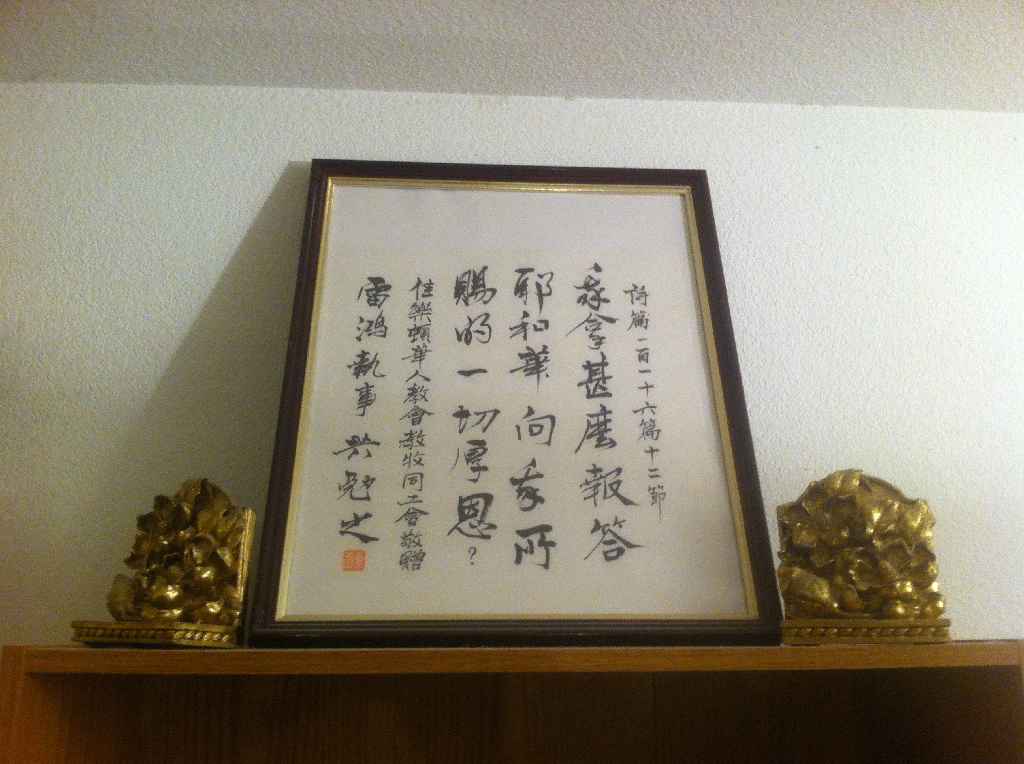 詩篇一百一十六篇十二節
我拿甚麼報答
耶和華向我所
賜的一切厚恩?
佳樂頓華人教會教牧同工會敬贈
雷鴻執事 共勉之